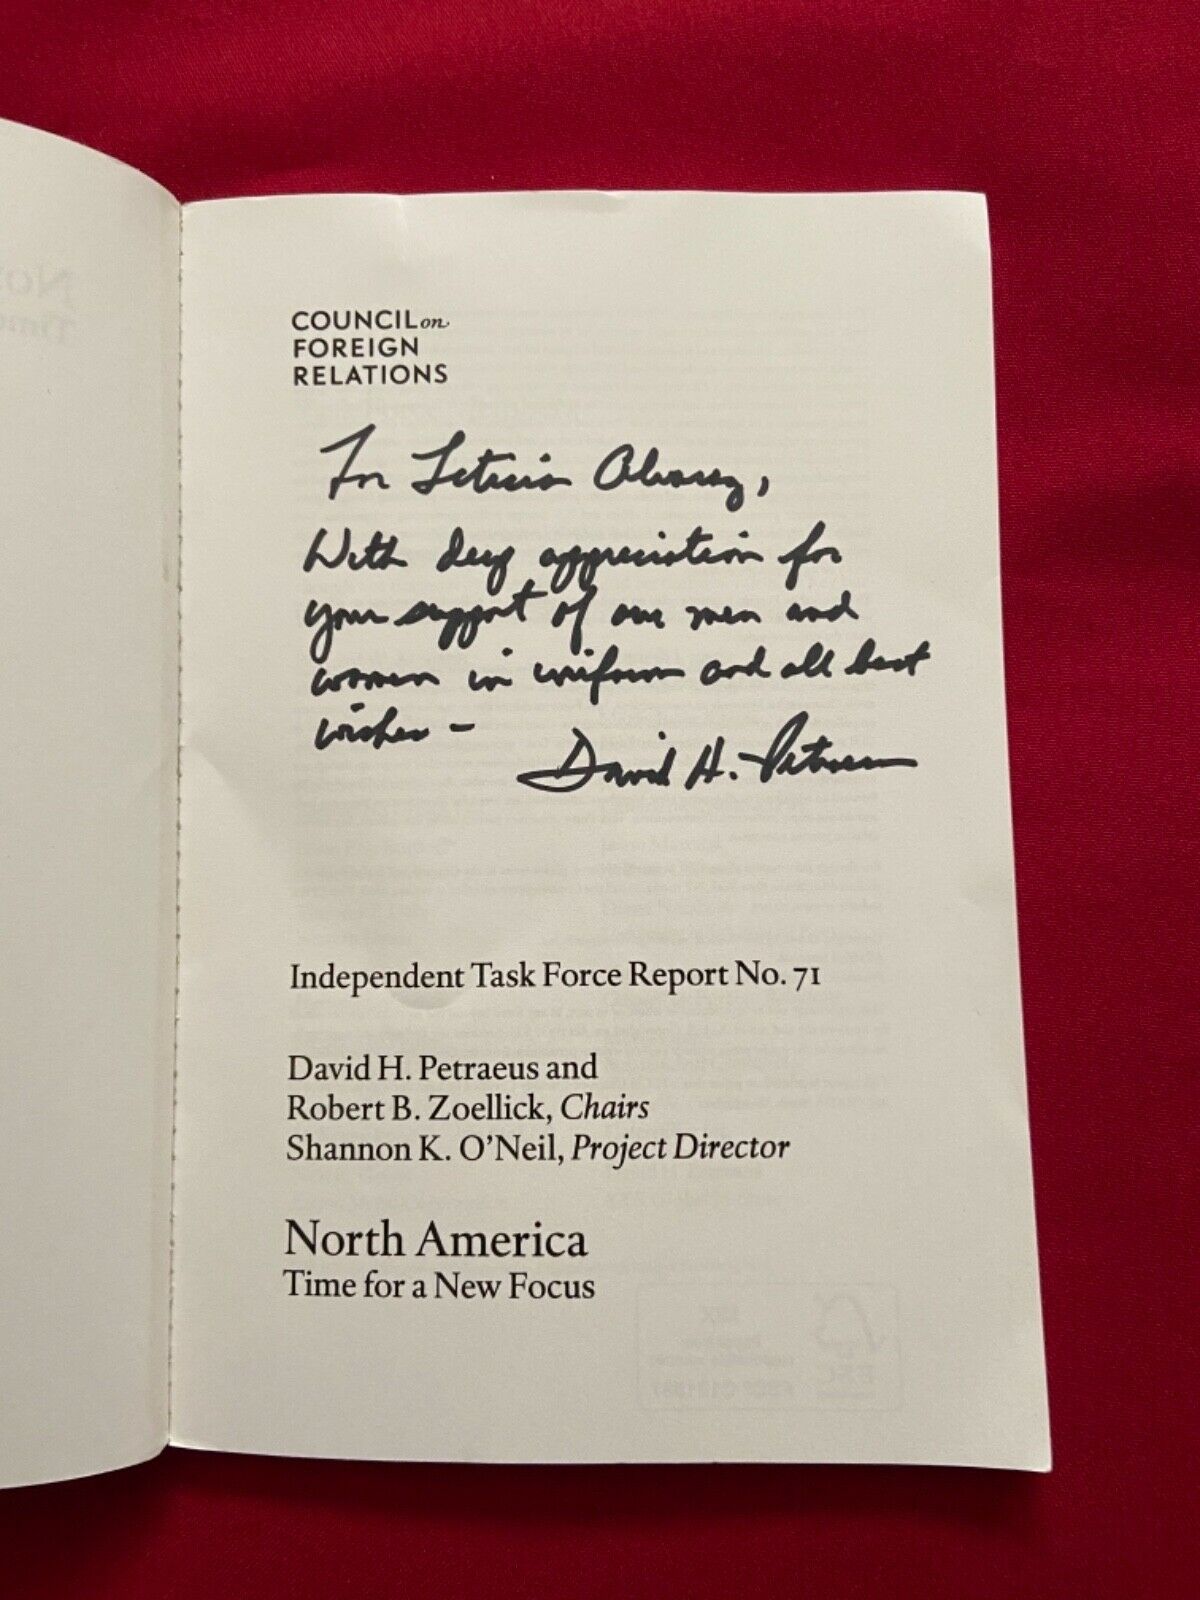 COUNCIL on
FOREIGN
RELATIONS
For Leticia Alvarez,
With deep appreciation for
your support of our men and
women in uniform and all best
wishes -
David H. Petraeus
Independent Task Force Report No. 71
David H. Petraeus and
Robert B. Zoellick, Chairs
Shannon K. O'Neil, Project Director
North America
Time for a New Focus